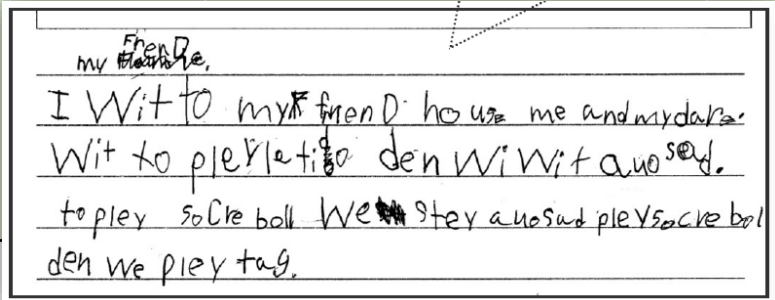 FrenD
my
I Wit to my frenD house me and my
Wit to pley den Wi Wit auosed.
to pley soCre boll We stey auosud pley socre bol
den we pley tag.